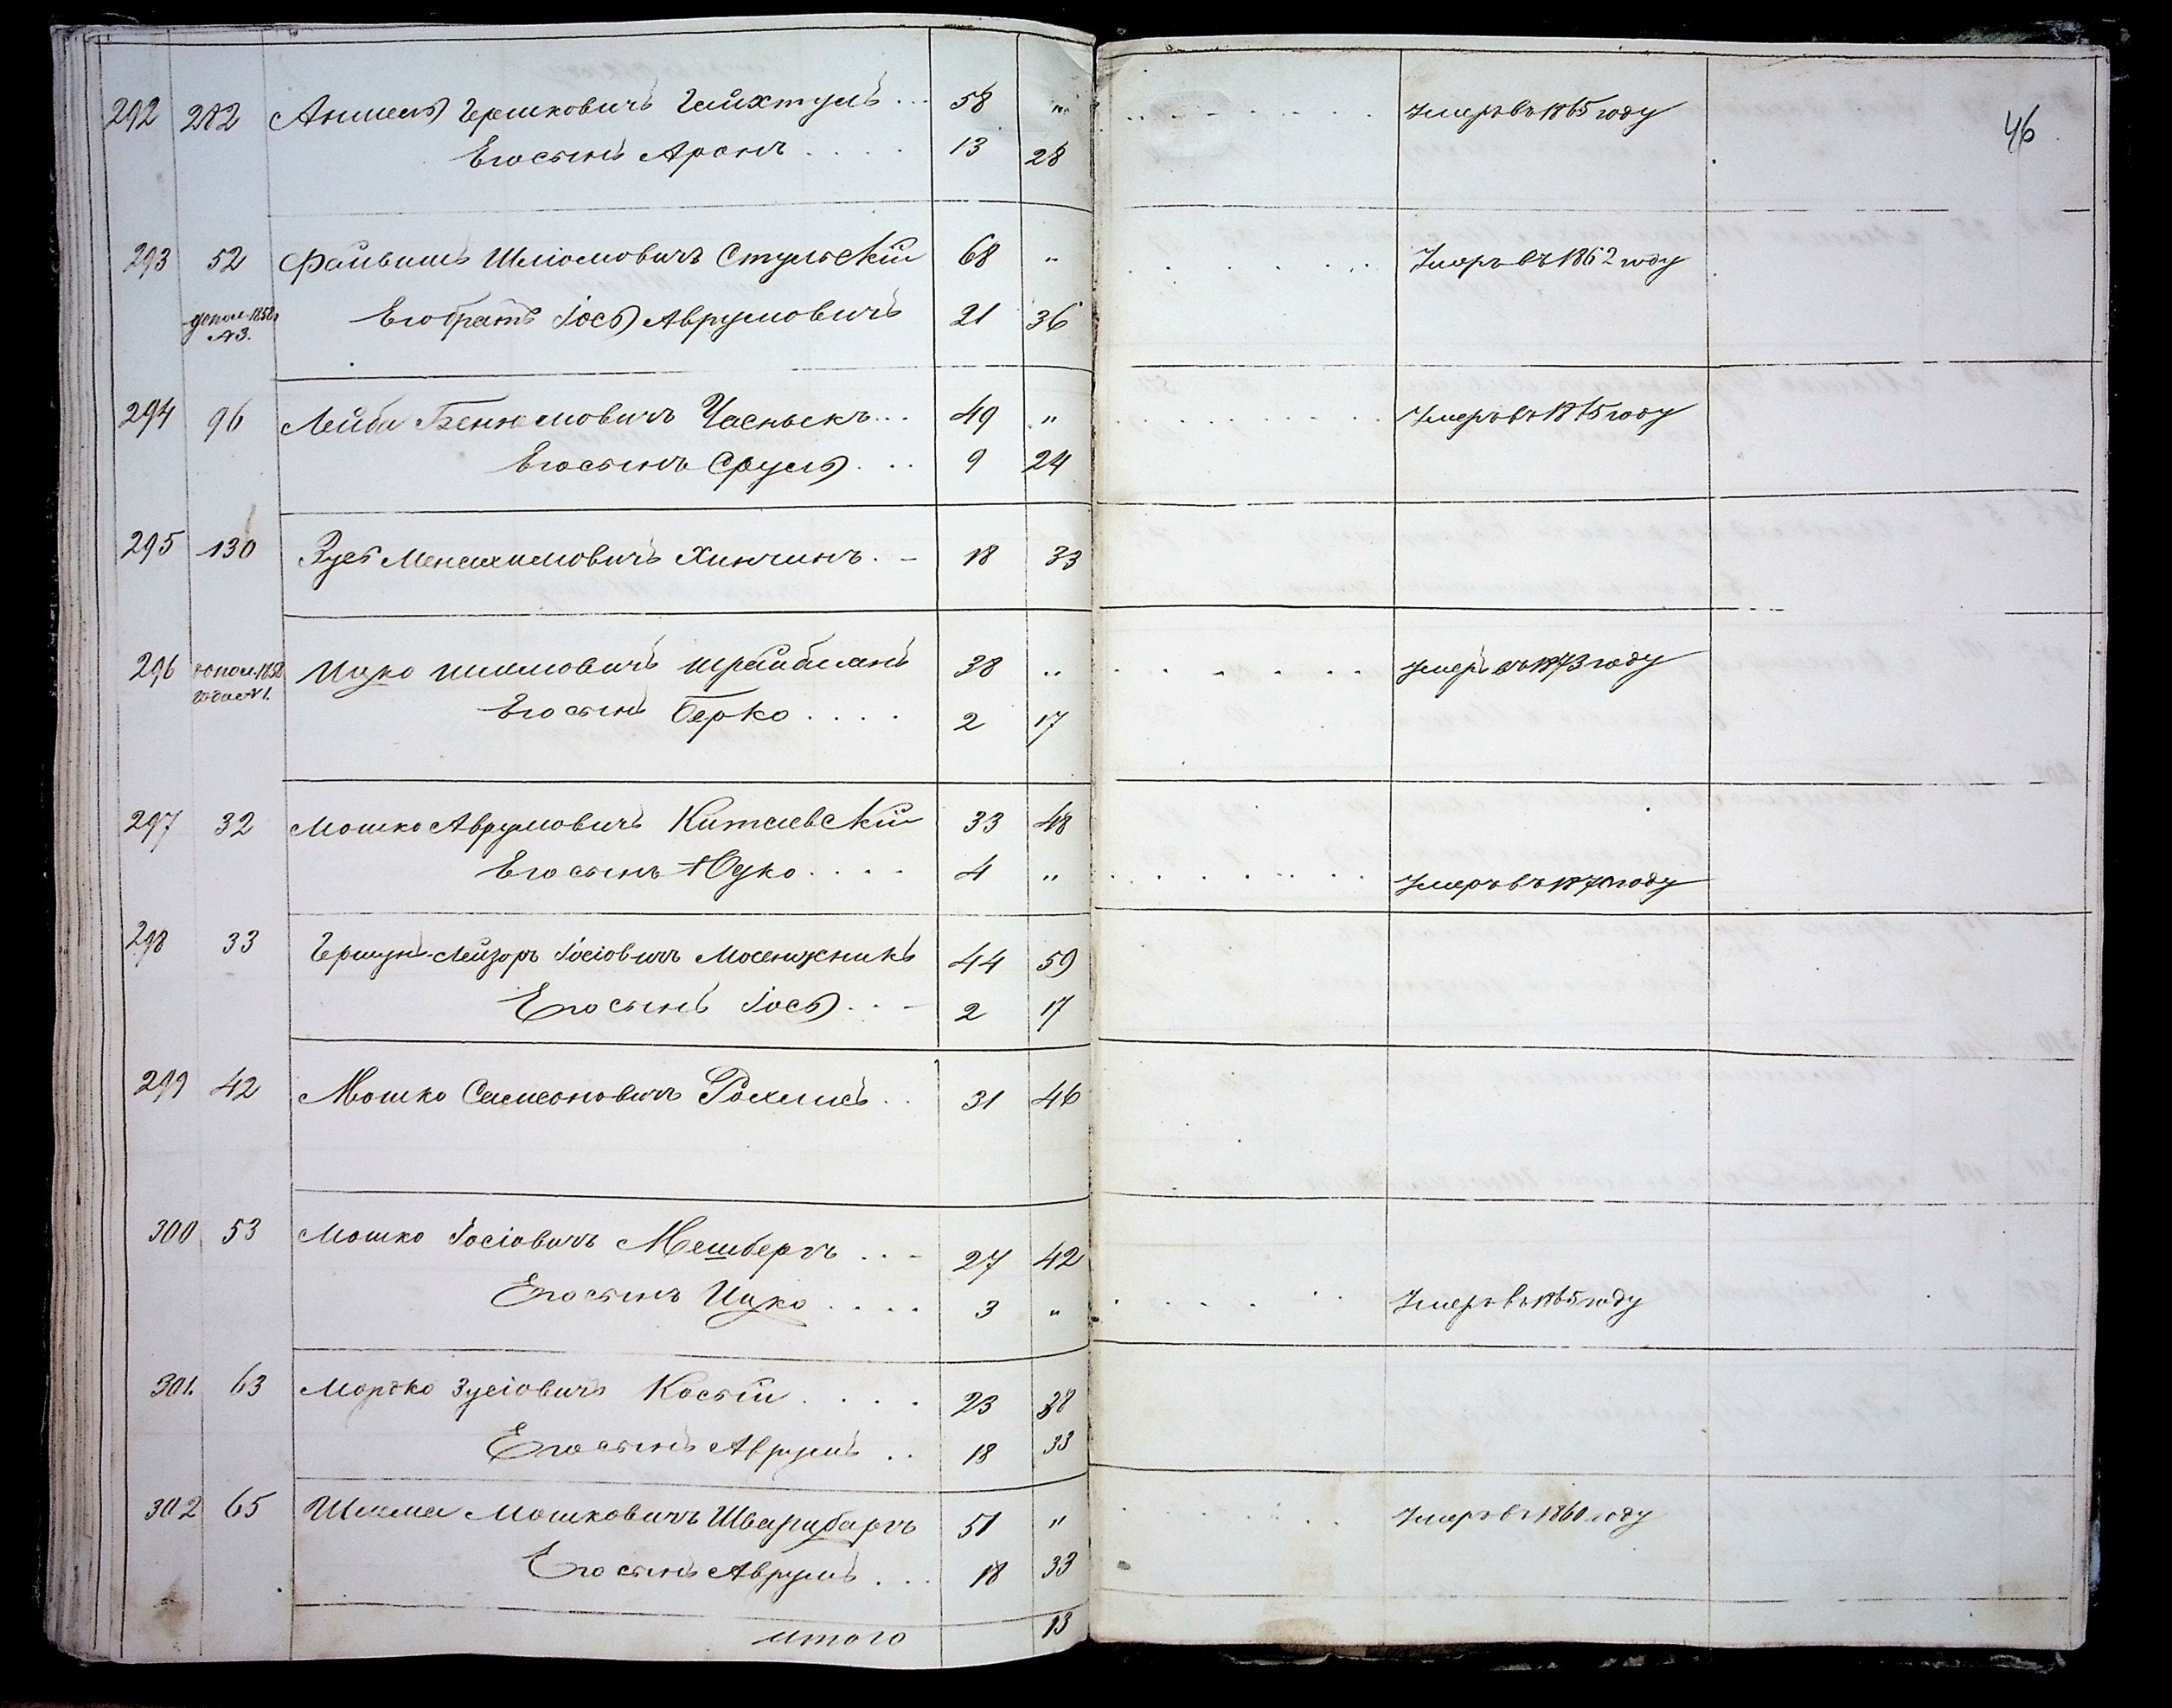 46
292 282 Аншель Гершковичъ Гайхтуль ... 58 " Умеръ въ 1865 году
Его сынъ Аронъ .... 13 28
293 52 Файвишъ Шліомовичъ Стульскій 68 " Умеръ въ 1862 году
допол. 1858 №3. Его братъ Іось Аврумовичъ 21 36
294 96 Лейба Бенюмовичъ Часныкъ ... 49 " Умеръ въ 1875 году
Его сынъ Сруль ... 9 24
295 130 Зусь Менахимовичъ Хинчинъ. - 18 33
296 допол. 1858 года №1. Ицко Шимовичъ Шрайбманъ 38 " Умеръ въ 1873 году
Его сынъ Берко .... 2 17
297 32 Мошко Аврумовичъ Китаевскій 33 48
Его сынъ Юдко .... 4 " Умеръ въ 1870 году
298 33 Гершунъ-Лейзоръ Іосіовичъ Мосенжникъ 44 59
Его сынъ Іось ... 2 17
299 42 Мошко Самсоновичъ .. 31 46
300 53 Мошко Іосіовичъ Мешбергъ ... 27 42
Его сынъ Ицко .... 3 " Умеръ въ 1865 году
301. 63 Мордко Зусіовичъ Косый .... 23 38
Его сынъ Аврумъ .. 18 33
302 65 Шлема Мошковичъ Шварцбаргъ 51 " Умеръ въ 1860 году
Его сынъ Аврумъ ... 18 33
итого 13